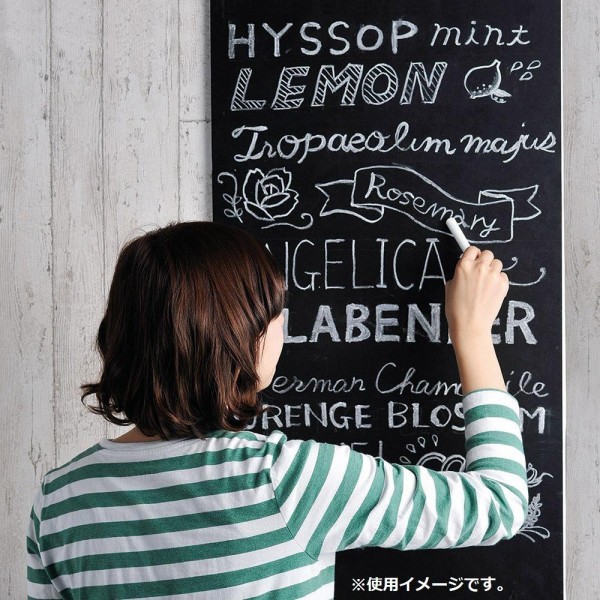 HYSSOP mint
LEMON
Tropaeolum majus
Rosemary
NGELICA
LABENDER
erman Cham
RENGE BLOSSOM
※使用イメージです。